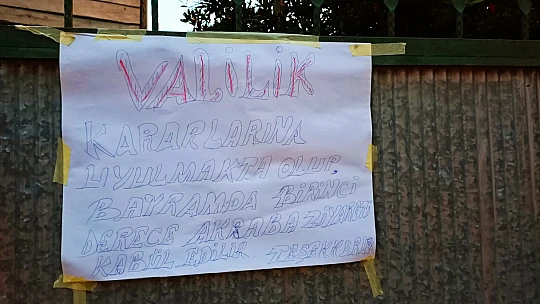 VALİLİK
KARARLARINA
UYULMAKTA OLUP,
BAYRAMDA BİRİNCİ
DERECE AKRABA ZİYARETİ
KABÜL EDİLİR. TEŞEKKÜRLER